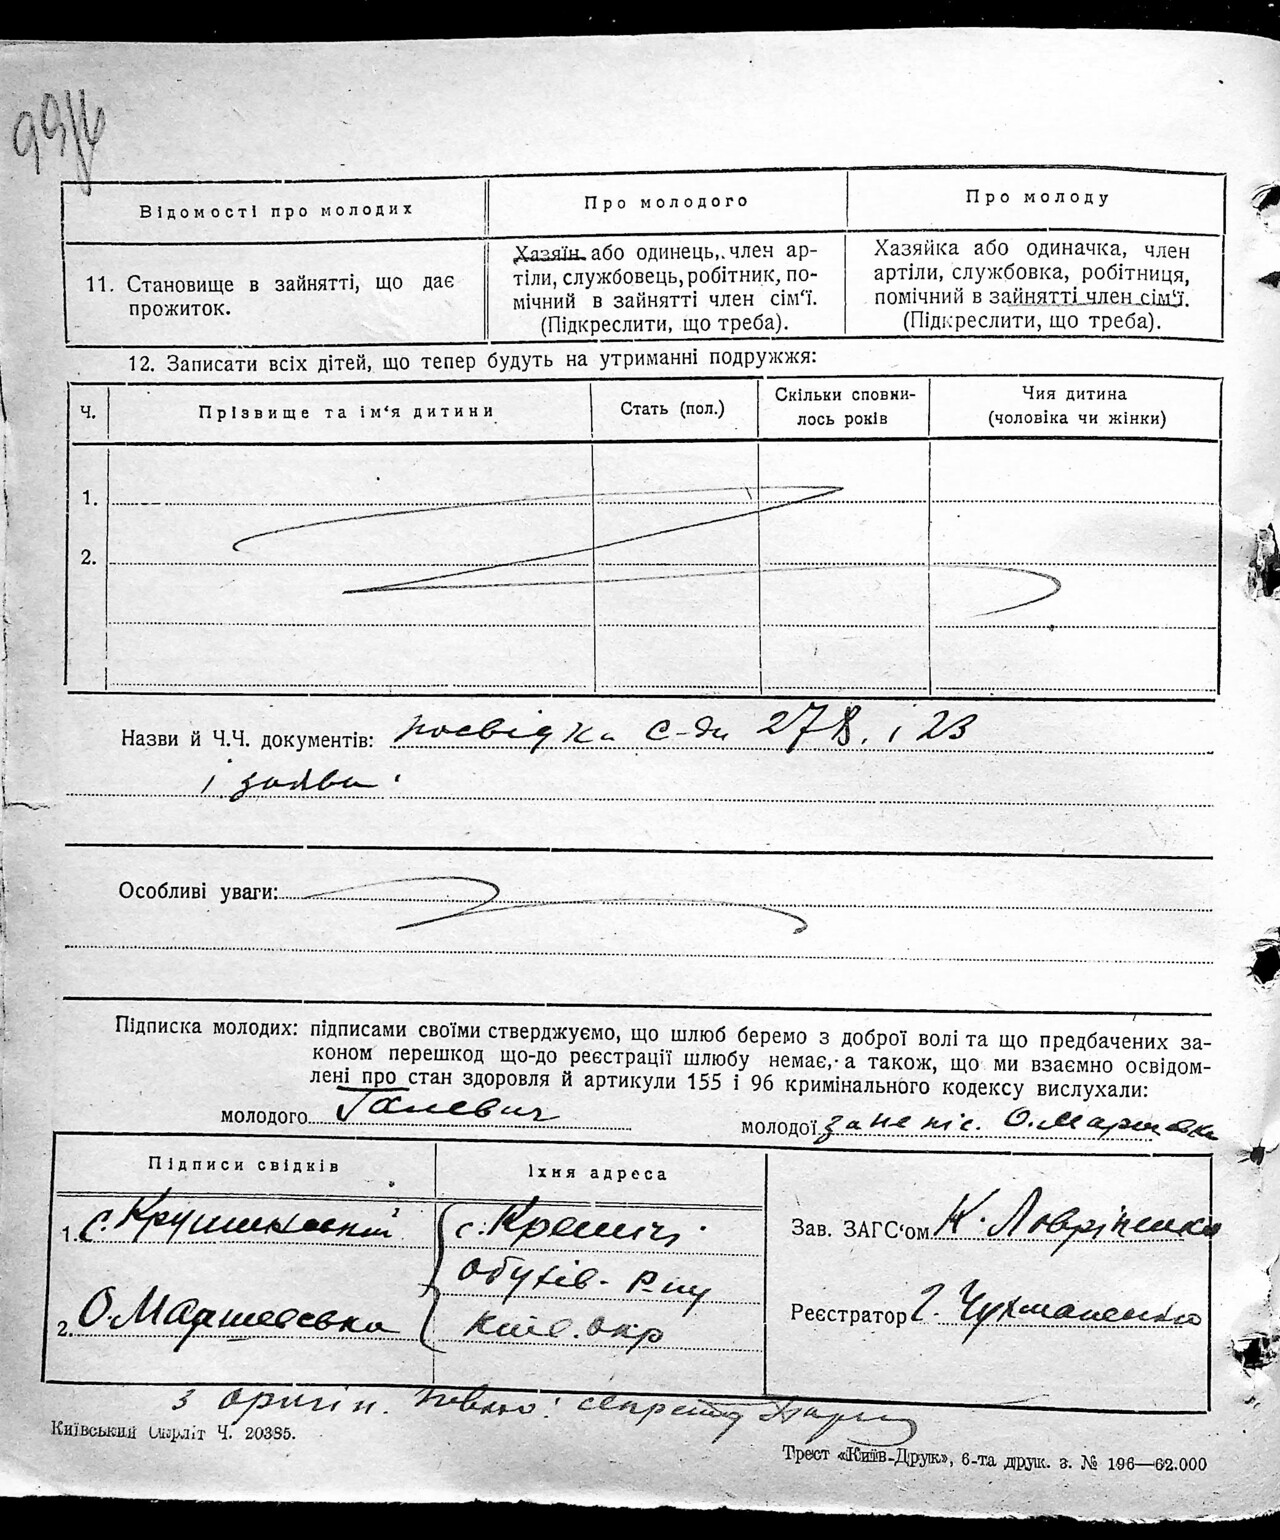 Відомості про молодих
Про молодого
Про молоду
11. Становище в зайнятті, що дає
прожиток.
Хазяїн або одинець, член ар-
тіли, службовець, робітник, по-
мічний в зайнятті член сім'ї.
(Підкреслити, що треба).
Хазяйка або одиначка, член
артіли, службовка, робітниця,
помічний в зайнятті член сім'ї.
(Підкреслити, що треба).
12. Записати всіх дітей, що тепер будуть на утриманні подружжя:
Ч.
Прізвище та ім'я дитини
Стать (пол.)
Скільки сповни-
лось років
Чия дитина
(чоловіка чи жінки)
1.
2.
Назви й Ч.Ч. документів: посвідки с-ди 278. і 23
і заяви
Особливі уваги:
Підписка молодих: підписами своїми стверджуємо, що шлюб беремо з доброї волі та що предбачених за-
коном перешкод що-до реєстрації шлюбу немає, а також, що ми взаємно освідом-
лені про стан здоровля й артикули 155 і 96 кримінального кодексу вислухали:
молодого Галевич
молодої за непіс. О.
Підписи свідків
Їхня адреса
1. с.
с.
Обухів. р-ну
Київ. окр
2. О.
Зав. ЗАГС'ом К.
Реєстратор Г. Чухманенко
з оригін.
Київський Окрліт Ч. 20385.
Трест «Київ-Друк», 6-та друк. з. № 196—62.000